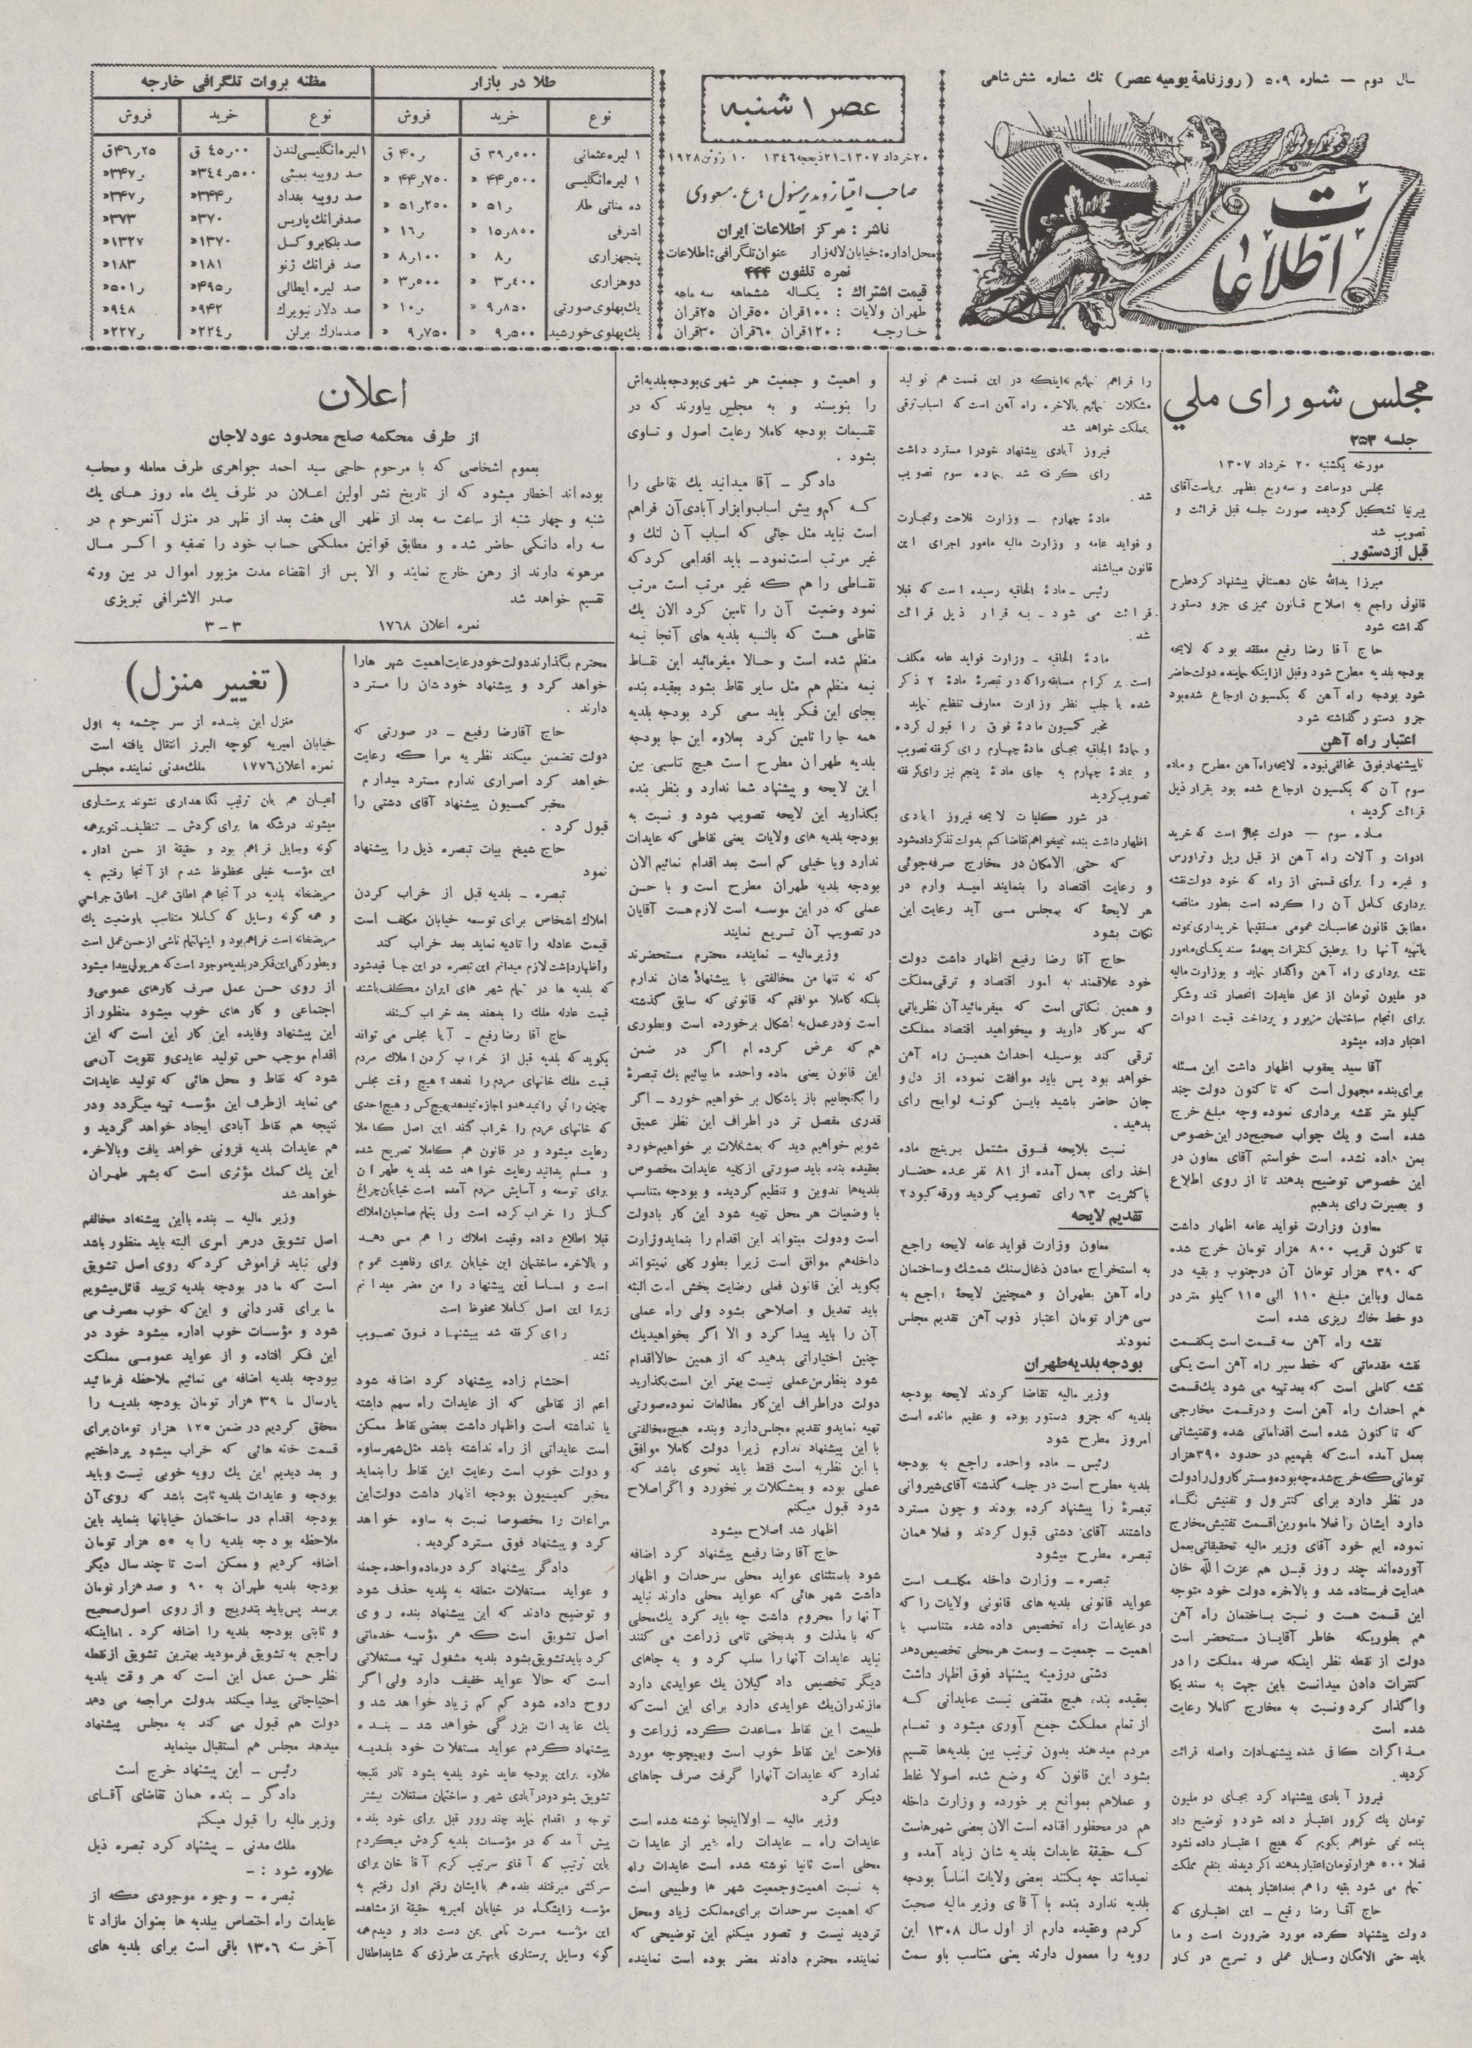 سال دوم — شماره ۵۰۹ (روزنامهٔ یومیه عصر) تك شماره شش شاهی
اطلاعات
عصر ۱ شنبه
۲۰ خرداد ۱۳۰۷-۲۱ ذیحجه ۱۳۴۶ ۱۰ ژوئن ۱۹۲۸
صاحب امتیاز و مدیر مسئول : ع . مسعودی
ناشر : مرکز اطلاعات ایران
محل اداره: خیابان لاله زار عنوان تلگرافی: اطلاعات
نمره تلفون ۴۴۴
قیمت اشتراك : یکساله ششماهه سه ماهه
طهران ولایات : ۱۰۰قران ۵۰قران ۲۵قران
خارجه : ۱۲۰قران ۶۰قران ۳۰قران
طلا در بازار
نوع خرید فروش
۱ لیره عثمانی ۵۰۰ر۳۹ ق ر۴۰ ق
۱ لیره انگلیسی ۵۰۰ر۴۴ « ۷۵۰ر۴۴ «
ده مناتی طلا ر۵۱ « ۲۵۰ر۵۱ «
اشرفی ۸۵۰ر۱۵ « ر۱۶ «
پنجهزاری ر۸ « ۱۰۰ر۸ «
دوهزاری ۴۰۰ر۳ « ۵۰۰ر۳ «
یك پهلوی صورتی ۸۵۰ر۹ « ر۱۰ «
یك پهلوی خورشید ۵۰۰ر۹ « ۷۵۰ر۹ «
مظنه بروات تلگرافی خارجه
نوع خرید فروش
۱لیره انگلیسی لندن ۰۰ر۴۵ ق ۲۵ر۴۶ق
صد روپیه بمبئی ۵۰۰ر۳۴۴« ر۳۴۷«
صد روپیه بغداد ر۳۴۴« ر۳۴۷«
صدفرانك پاریس ۳۷۰« ۳۷۳«
صد بلکا بروکسل ۱۳۷۰« ۱۳۲۷«
صد فرانك ژنو ۱۸۱« ۱۸۳«
صد لیره ایطالی ر۴۹۵« ر۵۰۱«
صد دلار نیویرك ۹۴۲« ۹۴۸«
صدمارك برلن ر۲۲۴« ر۲۲۷«
مجلس شورای ملی
جلسه ۲۵۳
مورخه یکشنبه ۲۰ خرداد ۱۳۰۷
مجلس دوساعت و سه ربع بظهر بریاست آقای
پیرنیا تشکیل گردیده صورت جلسه قبل قرائت و
تصویب شد
قبل از دستور
میرزا یدالله خان دهستانی پیشنهاد کرد طرح
قانونی راجع به اصلاح قانون ممیزی جزو دستور
گذاشته شود
حاج آقا رضا رفیع معتقد بود که لایحه
بودجه بلدیه مطرح شود وقبل از اینکه نماینده دولت حاضر
شود بودجه راه آهن که بکمسیون ارجاع شده بود
جزو دستور گذاشته شود
اعتبار راه آهن
با پیشنهاد فوق مخالفی نبوده لایحه راه آهن مطرح و ماده
سوم آن که بکمسیون ارجاع شده بود بقرار ذیل
قرائت گردید :
ماده سوم — دولت مجاز است که خرید
ادوات و آلات راه آهن از قبل ریل وتراورس
و غیره را برای قسمتی از راه که خود دولت نقشه
برداری کامل آن را کرده است بطور مناقصه
مطابق قانون محاسبات عمومی مستقیما خریداری نموده
یاتهیه آنها را برطبق کنترات بعهدهٔ سندیکای مامور
نقشه برداری راه آهن واگذار نماید و بوزارت مالیه
دو ملیون تومان از محل عایدات انحصار قند وشکر
برای انجام ساختمان مزبور و پرداخت قیمت ادوات
اعتبار داده میشود
آقا سید یعقوب اظهار داشت این مسئله
برای بنده مجهول است که تا کنون دولت چند
کیلو متر نقشه برداری نموده وچه مبلغ خرج
شده است و یك جواب صحیح در این خصوص
بمن داده نشده است خواستم آقای معاون در
این خصوص توضیح بدهند تا از روی اطلاع
و بصیرت رای بدهیم
معاون وزارت فواید عامه اظهار داشت
تا کنون قریب ۸۰۰ هزار تومان خرج شده
که ۳۹۰ هزار تومان آن درجنوب و بقیه در
شمال وبااین مبلغ ۱۱۰ الی ۱۱۵ کیلو متر در
دو خط خاك ریزی شده است
نقشه راه آهن سه قسمت است یکقسمت
نقشه مقدماتی که خط سیر راه آهن است یکی
نقشه کاملی است که بعد تهیه می شود یك قسمت
هم احداث راه آهن است و درقسمت مخارجی
که تا کنون شده است اقداماتی شده وتفتیشاتی
بعمل آمده است که بفهمیم در حدود ۳۹۰هزار
تومانی که خرج شده چه بوده و مستر کارول را دولت
در نظر دارد برای کنترول و تفتیش نگاه
دارد ایشان را فعلا مامور بن اقسمت تفتیش مخارج
نموده ایم خود آقای وزیر مالیه تحقیقاتی بعمل
آورده اند چند روز قبل هم عزت الله خان
هدایت فرستاده شد و بالاخره دولت خود متوجه
این قسمت هست و نسبت بساختمان راه آهن
هم بطوریکه خاطر آقایان مستحضر است
دولت از نقطه نظر اینکه صرفه مملکت را در
کنترات دادن میدانست باین جهت به سندیکا
واگذار کرد ونسبت به مخارج کاملا رعایت
شده است
مذاکرات کافی شده پیشنهادات واصله قرائت
گردید
فیروز آبادی پیشنهاد کرد بجای دو ملیون
تومان یك کرور اعتبار داده شود و توضیح داد
بنده نمی خواهم بگویم که هیچ اعتبار داده نشود
فعلا ۵۰۰ هزارتومان اعتبار بدهند اگر دیدند بنفع مملکت
تمام می شود بقیه را هم بعد اعتبار بدهند
حاج آقا رضا رفیع — این اعتباری که
دولت پیشنهاد کرده مورد ضرورت است و ما
باید حتی الامکان وسایل عملی و تسریع در کار
را فراهم نمائیم نه اینکه در این قسمت هم تولید
مشکلات نمائیم بالاخره راه آهن است که اسباب ترقی
مملکت خواهد شد
فیروز آبادی پیشنهاد خودرا مسترد داشت
رای گرفته شد بماده سوم تصویب
شد .
مادهٔ چهارم — وزارت فلاحت وتجارت
و فواید عامه و وزارت مالیه مامور اجرای این
قانون میباشند
رئیس - مادهٔ الحاقیه رسیده است که قبلا
قرائت می شود - به قرار ذیل قرائت
شد .
مادهٔ الحاقیه - وزارت فواید عامه مکلف
است پرگرام مسابقه راکه در تبصرهٔ مادهٔ ۲ ذکر
شده با جلب نظر وزارت معارف تنظیم نماید
مخبر کمسیون مادهٔ فوق را قبول کرده
و بمادهٔ الحاقیه بجای مادهٔ چهارم رای گرفته تصویب
و بمادهٔ چهارم به جای مادهٔ پنجم نیز رای گرفته
تصویب گردید
در شور کلیات لایحه فیروز آبادی
اظهار داشت بنده نمیخواهم تقاضا کنم بدولت تذکر داده شود
که حتی الامکان در مخارج صرفه جوئی
و رعایت اقتصاد را بنمایند امید وارم در
هر لایحهٔ که بمجلس می آید رعایت این
نکات بشود
حاج آقا رضا رفیع اظهار داشت دولت
خود علاقمند به امور اقتصاد و ترقی مملکت
و همین نکاتی است که میفرمائید آن نظریاتی
که سرکار دارید و میخواهید اقتصاد مملکت
ترقی کند بوسیله احداث همین راه آهن
خواهد بود پس باید موافقت نموده از دل و
جان حاضر باشید باین گونه لوایح رای
بدهید .
نسبت بلایحه فوق مشتمل برپنج ماده
اخذ رای بعمل آمده از ۸۱ نفر عده حضار
با کثریت ۶۳ رای تصویب گردید ورقه کبود ۲
تقدیم لایحه
معاون وزارت فواید عامه لایحه راجع
به استخراج معادن ذغال سنك شمشك و ساختمان
راه آهن بطهران و همچنین لایحهٔ راجع به
سی هزار تومان اعتبار ذوب آهن تقدیم مجلس
نمودند
بودجه بلدیه طهران
وزیر مالیه تقاضا کردند لایحه بودجه
بلدیه که جزو دستور بوده و عقیم مانده است
امروز مطرح شود
رئیس - ماده واحده راجع به بودجه
بلدیه مطرح است در جلسه گذشته آقای شیروانی
تبصرهٔ را پیشنهاد کرده بودند و چون مسترد
داشتند آقای دشتی قبول کردند و فعلا همان
تبصره مطرح میشود
تبصره - وزارت داخله مکلف است
عواید قانونی بلدیه های قانونی ولایات را که
در عایدات راه تخصیص داده شده متناسب با
اهمیت - جمعیت - وسعت هرمحلی تخصیص دهد
دشتی درزمینه پیشنهاد فوق اظهار داشت
بعقیده بنده هیچ مقتضی نیست عایداتی که
از تمام مملکت جمع آوری میشود و تمام
مردم میدهند بدون ترتیب بین بلدیه ها تقسیم
بشود این قانون که وضع شده اصولا غلط
و عملاهم بموانع بر خورده و وزارت داخله
هم در محظور افتاده است الان بعضی شهرهاست
که حقیقة عایدات بلدیه شان زیاد آمده و
نمیدانند چه بکنند بعضی ولایات اساساً بودجه
بلدیه ندارد بنده با آقای وزیر مالیه صحبت
کردم وعقیده دارم از اول سال ۱۳۰۸ این
رویه را معمول دارند یعنی متناسب باو سمت
و اهمیت و جمعیت هر شهری بودجه بلدیه اش
را بنویسند و به مجلس بیاورند که در
تقسیمات بودجه کاملا رعایت اصول و تساوی
بشود .
دادگر - آقا میدانید یك نقاطی را
که کم و بیش اسباب و ابزار آبادی آن فراهم
است نباید مثل جائی که اسباب آن لنك و
غیر مرتب است نمود - باید اقدامی کرد که
نقساطی را هم که غیر مرتب است مرتب
نمود وضعیت آن را تامین کرد الان یك
نقاطی هست که بالنسبه بلدیه های آنجا نیمه
منظم شده است و حالا میفرمائید این نقاط
نیمه منظم هم مثل سایر نقاط بشود بعقیده بنده
بجای این فکر باید سعی کرد بودجه بلدیه
همه جا را تامین کرد بعلاوه این جا بودجه
بلدیه طهران مطرح است هیچ تناسبی بین
این لایحه و پیشنهاد شما ندارد و بنظر بنده
بگذارید این لایحه تصویب شود و نسبت به
بودجه بلدیه های ولایات یعنی نقاطی که عایدات
ندارد ویا خیلی کم است بعد اقدام نمائیم الان
بودجه بلدیه طهران مطرح است و با حسن
عملی که در این موسسه است لازم هست آقایان
در تصویب آن تسریع نمایند
وزیرمالیه - نماینده محترم مستحضرند
که نه تنها من مخالفتی با پیشنهاد شان ندارم
بلکه کاملا موافقم که قانونی که سابق گذشته
است ودرعمل به اشکال برخورده است وبطوری
هم که عرض کرده ام اگر در ضمن
این قانون یعنی ماده واحده ما بیائیم یك تبصرهٔ
را بگنجانیم باز باشکال بر خواهیم خورد - اگر
قدری مفصل تر در اطراف این نظر عمیق
شویم خواهیم دید که بمشکلات بر خواهیم خورد
بعقیده بنده باید صورتی از کلیه عایدات مخصوص
بلدیه ها تدوین و تنظیم گردیده و بودجه متناسب
با وضعیات هر محل تهیه شود این کار بادولت
است ودولت میتواند این اقدام را بنمایدوزارت
داخله هم موافق است زیرا بطور کلی نمیتواند
بگوید این قانون فعلی رضایت بخش است البته
باید تعدیل و اصلاحی بشود ولی راه عملی
آن را باید پیدا کرد و الا اگر بخواهید یك
چنین اختیاراتی بدهید که از همین حالا اقدام
شود بنظر من عملی نیست بهتر این است بگذارید
دولت دراطراف این کار مطالعات نموده صورتی
تهیه نمایدو تقدیم مجلس دارد وبنده هیچ مخالفتی
با این پیشنهاد ندارم زیرا دولت کاملا موافق
با این نظریه است فقط باید نحوی باشد که
عملی بوده و بمشکلات بر نخورد و اگر اصلاح
شود قبول میکنم
اظهار شد اصلاح میشود
حاج آقا رضا رفیع پیشنهاد کرد اضافه
شود باستثنای عواید محلی سرحدات و اظهار
داشت شهر هائی که عواید محلی دارند نباید
آنها را محروم داشت چه باید کرد یك محلی
که با مذلت و بدبختی تامی زراعت می کنند
نباید عایدات آنها را سلب کرد و به جاهای
دیگر تخصیص داد گیلان یك عوایدی دارد
مازندران یك عوایدی دارد برای این است که
طبیعت این نقاط مساعدت کرده زراعت و
فلاحت این نقاط خوب است وبهیچوجه مورد
ندارد که عایدات آنهارا گرفت صرف جاهای
دیگر کرد
وزیر مالیه - اولا اینجا نوشته شده است
عایدات راه - عایدات راه غیر از عایدات
محلی است ثانیا نوشته شده است عایدات راه
به نسبت اهمیت وجمعیت شهر ها وطبیعی است
که اهمیت سرحدات برای مملکت زیاد و محل
تردید نیست و تصور میکنم این توضیحی که
نماینده محترم دادند مضر بوده است نماینده
اعلان
از طرف محکمه صلح محدود عودلاجان
بعموم اشخاصی که با مرحوم حاجی سید احمد جواهری طرف معامله و محاسبه
بوده اند اخطار میشود که از تاریخ نشر اولین اعلان در ظرف یك ماه روز های یك
شنبه و چهار شنبه از ساعت سه بعد از ظهر الی هفت بعد از ظهر در منزل آنمرحوم در
سه راه دانکی حاضر شده و مطابق قوانین مملکتی حساب خود را تصفیه و اگر مال
مرهونه دارند از رهن خارج نمایند و الا پس از انقضاء مدت مزبور اموال در بین ورثه
تقسیم خواهد شد صدر الاشرافی تبریزی
نمره اعلان ۱۷۶۸ ۳-۳
محترم بگذارند دولت خود رعایت اهمیت شهر هارا
خواهد کرد و پیشنهاد خودشان را مسترد
دارند .
حاج آقارضا رفیع - در صورتی که
دولت تضمین میکند نظریه مرا که رعایت
خواهد کرد اصراری ندارم مسترد میدارم
مخبر کمسیون پیشنهاد آقای دشتی را
قبول کرد .
حاج شیخ بیات تبصره ذیل را پیشنهاد
نمود
تبصره - بلدیه قبل از خراب کردن
املاك اشخاص برای توسعه خیابان مکلف است
قیمت عادله را تادیه نماید بعد خراب کند
واظهارداشت لازم میدانم این تبصره در این جا قیدشود
که بلدیه ها در تمام شهر های ایران مکلف باشند
قیمت عادله ملك را بدهند بعد خراب کنند
حاج آقا رضا رفیع - آیا مجلس می تواند
بگوید که بلدیه قبل از خراب کردن املاك مردم
قیمت ملك خانهای مردم را ندهد ؟ هیچ وقت مجلس
چنین رائی را نمیدهد و اجازه نمیدهد هیچ کس و هیچ احدی
که خانهای مردم را خراب کند . این اصل کاملا
رعایت میشود و در قانون هم کاملا تصریح شده
و مسلم بدانید رعایت خواهد شد بلدیه طهران
برای توسعه و آسایش مردم آمده است خیابان چراغ
گاز را خراب کرده است ولی بتمام صاحبان املاك
قبلا اطلاع داده وقیمت املاك را هم می دهد
و بالاخره ساختمان این خیابان برای رفاهیت عموم
است و اساسا این پیشنهاد را من مضر میدانم
زیرا این اصل کاملا محفوظ است
رای گرفته شد پیشنهاد فوق تصویب
نشد .
احتشام زاده پیشنهاد کرد اضافه شود
اعم از نقاطی که از عایدات راه سهم داشته
یا نداشته است واظهار داشت بعضی نقاط ممکن
است عایداتی از راه نداشته باشد مثل شهر ساوه
و دولت خوب است رعایت این نقاط را بنماید
مخبر کمیسیون بودجه اظهار داشت دولت این
مراعات را مخصوصا نسبت به ساوه خواهد
کرد و پیشنهاد فوق مسترد گردید .
دادگر پیشنهاد کرد درماده واحده جمله
و عواید مستغلات متعلقه به بلدیه حذف شود
و توضیح دادند که این پیشنهاد بنده روی
اصل تشویق است که هر مؤسسه خدماتی
کرد باید تشویق بشود بلدیه مشغول تهیه مستغلاتی
است که حالا عواید خفیف دارد ولی اگر
روح داده شود کم کم زیاد خواهد شد و
یك عایدات بزرگی خواهد شد - بنده
پیشنهاد کردم عواید مستغلات خود بلدیه
علاوه براین بودجه عاید خود بلدیه بشود تادر نتیجه
تشویق بشود درآبادی شهر و ساختمان مستغلات بیشتر
توجه و اقدام نماید چند روز قبل برای خود بنده
پیش آمد که در مؤسسات بلدیه گردش میکردم
باین ترتیب که آقای سرتیب کریم آقا خان برای
سرکشی میرفتند بنده هم با ایشان رفتم اول رفتیم به
مؤسسه زایشگاه در خیابان امیریه حقیقة از مشاهده
این مؤسسه مسرت تامی بمن دست داد و دیدم همه
گونه وسایل پرستاری بابهترین طرزی که شاید اطفال
(تغییر منزل)
منزل این بنده از سر چشمه به اول
خیابان امیریه کوچه البرز انتقال یافته است
نمره اعلان ۱۷۷۶ ملك مدنی نماینده مجلس
اعیان هم بان ترتیب نگاهداری نشوند پرستاری
میشوند درشگه ها برای گردش - تنظیف - تنویر همه
گونه وسایل فراهم بود و حقیقة از حسن اداره
این مؤسسه خیلی محظوظ شدم از آنجا رفتیم به
مریضخانه بلدیه در آنجا هم اطاق عمل - اطاق جراحی
و همه گونه وسایل که کاملا متناسب باوضعیت یك
مریضخانه است فراهم بود و اینها تمام ناشی از حسن عمل است
و بطور کلی این فکر در بلدیه موجود است که هر پولی پیدا میشود
از روی حسن عمل صرف کارهای عمومی و
اجتماعی و کار های خوب میشود منظور از
این پیشنهاد وفایده این کار این است که این
اقدام موجب حس تولید عایدی و تقویت آن می
شود که نقاط و محل هائی که تولید عایدات
می نماید ازطرف این مؤسسه تهیه میگردد ودر
نتیجه هم نقاط آبادی ایجاد خواهد گردید و
هم عایدات بلدیه فزونی خواهد یافت وبالاخره
این یك کمك مؤثری است که بشهر طهران
خواهد شد
وزیر مالیه - بنده بااین پیشنهاد مخالفم
اصل تشویق درهر امری البته باید منظور باشد
ولی نباید فراموش کرد که روی اصل تشویق
است که ما در بودجه بلدیه تزیید قائل میشویم
ما برای قدردانی و این که خوب مصرف می
شود و مؤسسات خوب اداره میشود خود در
این فکر افتاده و از عواید عمومی مملکت
ببودجه بلدیه اضافه می نمائیم ملاحظه فرمائید
پارسال ما ۳۹ هزار تومان بودجه بلدیه را
محقق کردیم در ضمن ۱۲۵ هزار تومان برای
قسمت خانه هائی که خراب میشود پرداختیم
و بعد دیدیم این یك رویه خوبی نیست وباید
بودجه و عایدات بلدیه ثابت باشد که روی آن
بودجه اقدام در ساختمان خیابانها بنماید باین
ملاحظه بودجه بلدیه را به ۵۰ هزار تومان
اضافه کردیم و ممکن است تا چند سال دیگر
بودجه بلدیه طهران به ۹۰ و صد هزار تومان
برسد پس باید بتدریج و از روی اصول صحیح
و ثابتی بودجه بلدیه را اضافه کرد . اما اینکه
راجع به تشویق فرمودید بهترین تشویق از نقطه
نظر حسن عمل این است که هر وقت بلدیه
احتیاجاتی پیدا میکند بدولت مراجعه می دهد
دولت هم قبول می کند به مجلس پیشنهاد
میدهد مجلس هم استقبال مینماید
رئیس - این پیشنهاد خرج است
دادگر - بنده همان تقاضای آقای
وزیر مالیه را قبول میکنم
ملك مدنی - پیشنهاد کرد تبصره ذیل
علاوه شود : -
تبصره - وجوه موجودی مکه از
عایدات راه اختصاص ببلدیه ها بعنوان مازاد تا
آخر سنه ۱۳۰۶ باقی است برای بلدیه های